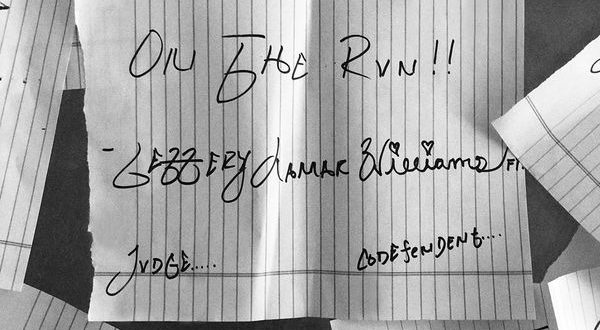 ON THE RUN!!
- JEFFERY LAMAR Williams
JUDGE..... CODEfENDENT....